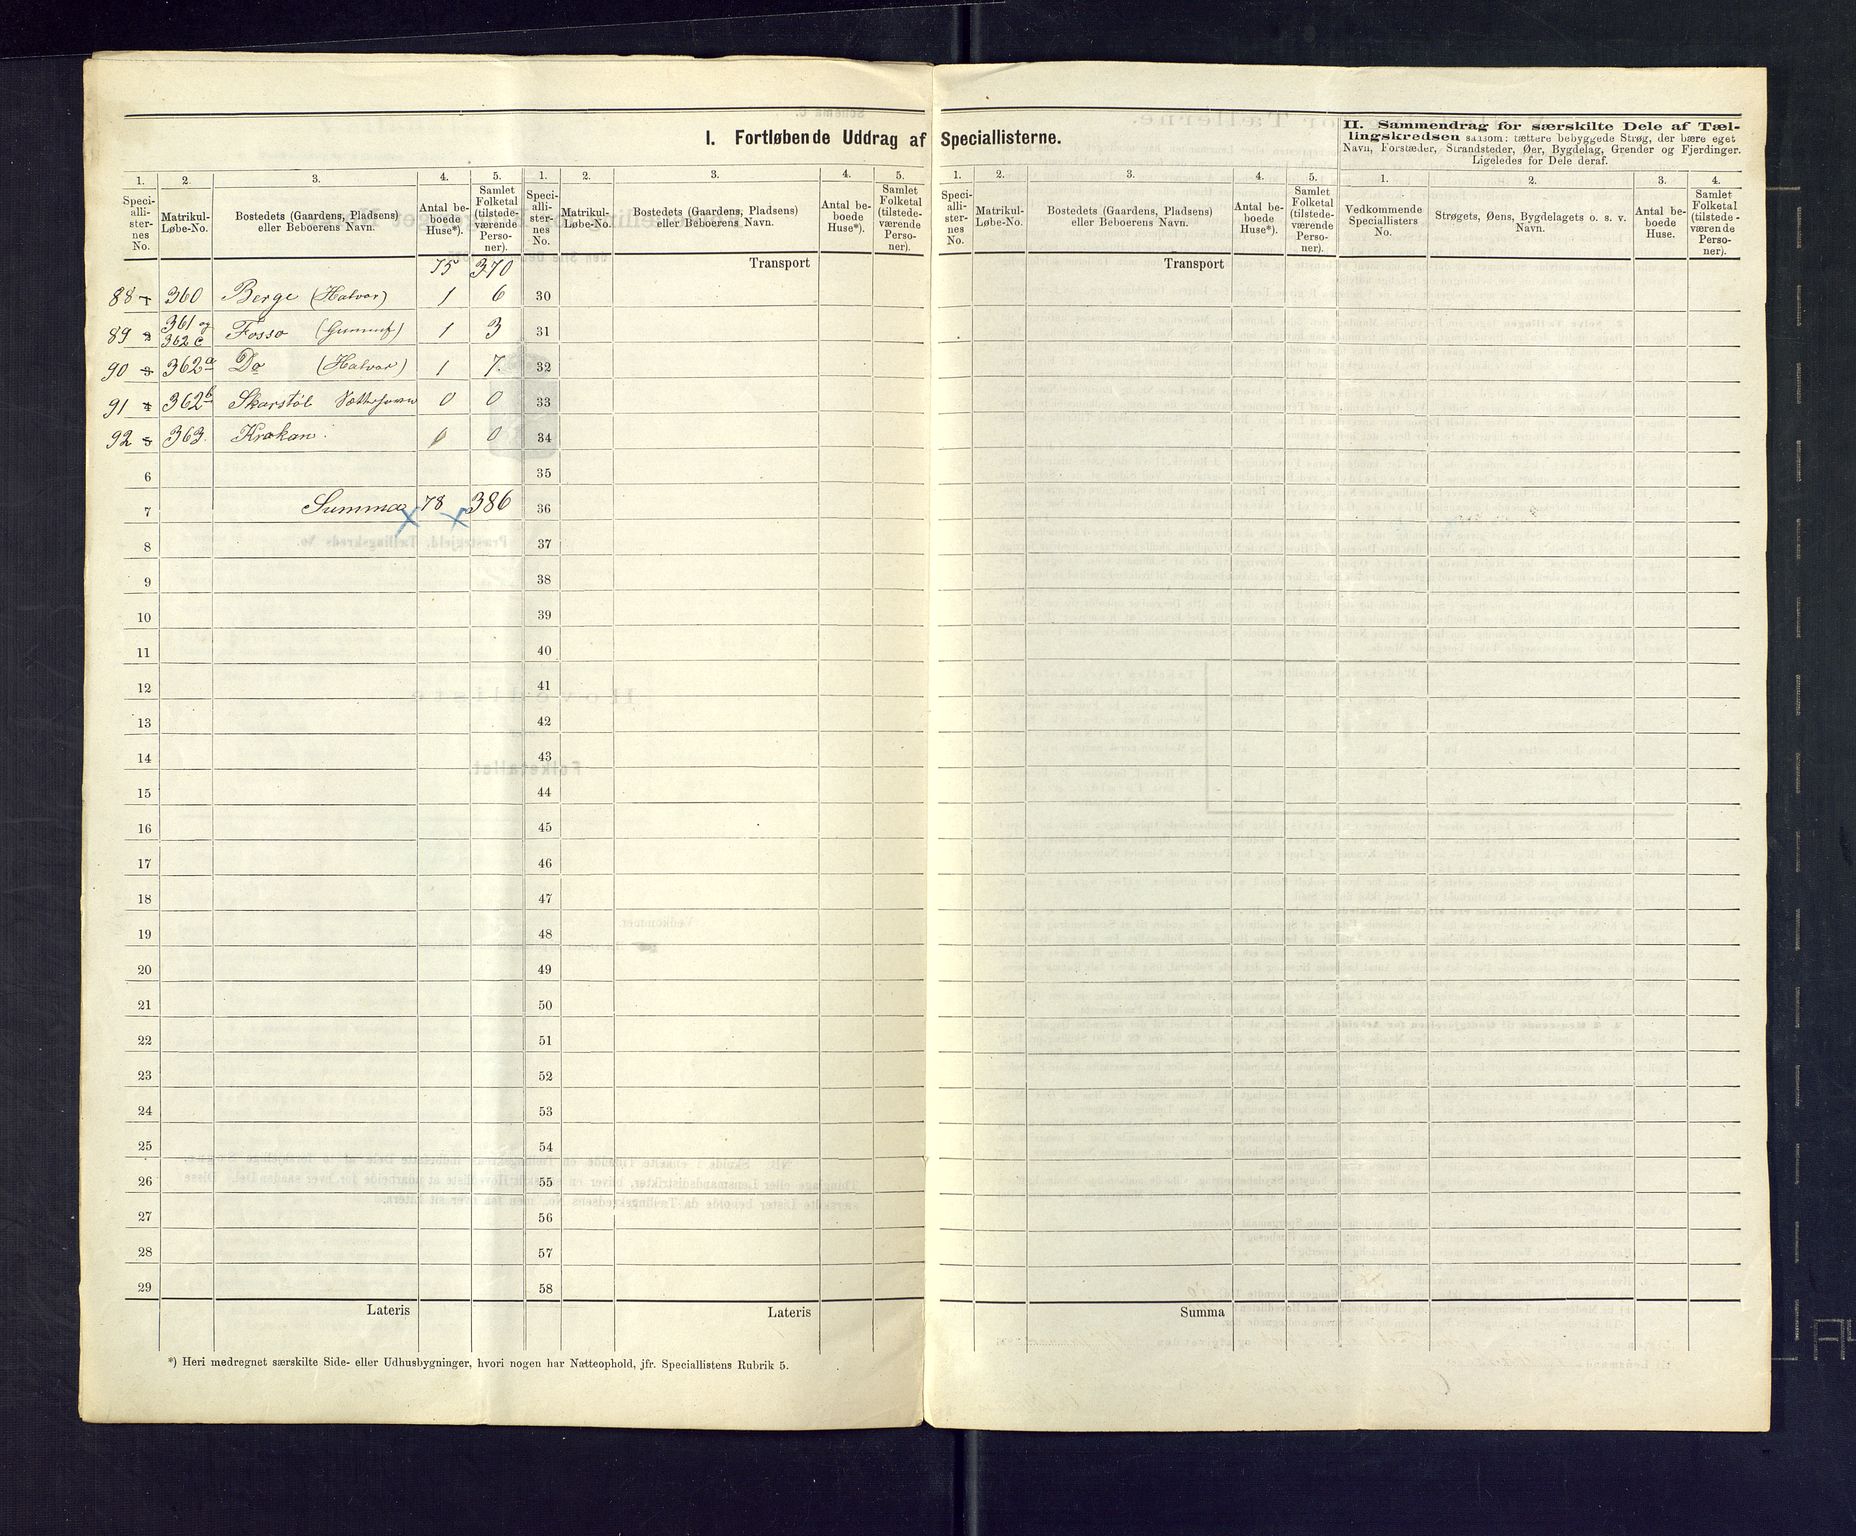 I. Fortløbende Uddrag af Speciallisterne.
II. Sammendrag for særskilte Dele af Tæl-
lingskredsen saasom: tættere bebyggede Strøg, der bære eget
Navn, Forstæder, Strandsteder, Øer, Bygdelag, Grender og Fjerdinger.
Ligeledes for Dele deraf.
1. 2. 3. 4. 5. 1. 2. 3. 4. 5. 1. 2. 3. 4. 5. 1. 2. 3. 4.
Speciallisternes No.
Matrikul-Løbe-No.
Bostedets (Gaardens, Pladsens) eller Beboerens Navn.
Antal beboede Huse*).
Samlet Folketal (tilstedeværende Personer).
Speciallisternes No.
Matrikul-Løbe-No.
Bostedets (Gaardens, Pladsens) eller Beboerens Navn.
Antal beboede Huse*).
Samlet Folketal (tilstedeværende Personer).
Speciallisternes No.
Matrikul-Løbe-No.
Bostedets (Gaardens, Pladsens) eller Beboerens Navn.
Antal beboede Huse*).
Samlet Folketal (tilstedeværende Personer).
Vedkommende Speciallisters No.
Strøgets, Øens, Bygdelagets o. s. v. Navn.
Antal beboede Huse.
Samlet Folketal (tilstedeværende Personer).
75 370 Transport Transport
88 1 360 Berge (Halvor) 1 6 30
89 2 361 og 362 c Fosso (Gunnuf) 1 3 31
90 3 362a Do (Halvor) 1 7. 32
91 4 362b Skarstøl 0 0 33
92 5 363. Krokan. 0 0 34
6 35
7 Summa 78 386 36
8 37
9 38
10 39
11 40
12 41
13 42
14 43
15 44
16 45
17 46
18 47
19 48
20 49
21 50
22 51
23 52
24 53
25 54
26 55
27 56
28 57
29 58
Lateris Lateris Summa
*) Heri medregnet særskilte Side- eller Udhusbygninger, hvori nogen har Natteophold, jfr. Speciallistens Rubrik 5.